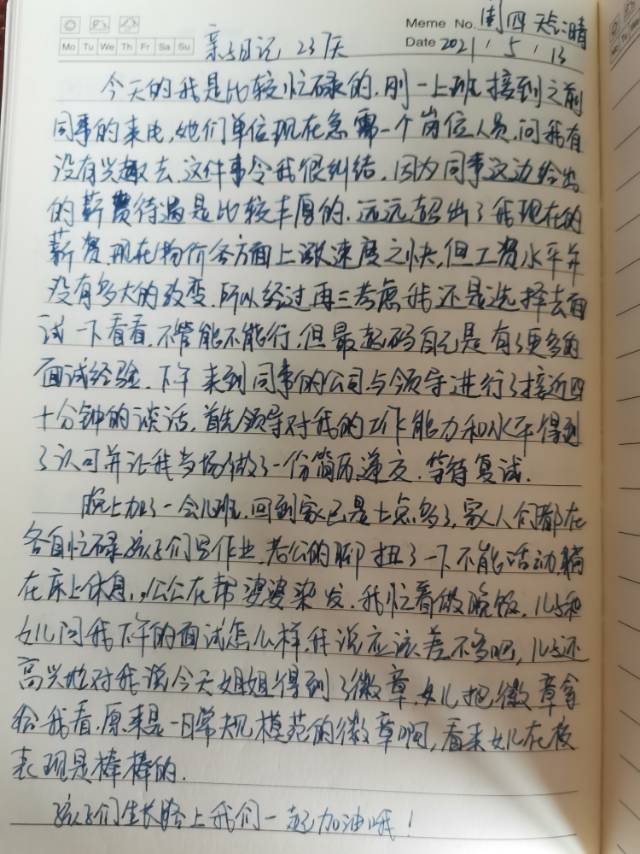 Meme No. 周四 天气:晴
Mo Tu We Th Fr Sa Su
亲子日记 237天
Date 2021/5/13
今天的我是比较忙碌的.刚一上班接到之前
同事的来电,她们单位现在急需一个岗位人员.问我有
没有兴趣去.这件事令我很纠结.因为同事这边给出
的薪费待遇是比较丰厚的.远远超出了我现在的
薪资.现在物价各方面上涨速度之快,但工资水平并
没有多大的改变.所以经过再三考虑我还是选择去面
试一下看看.不管能不能行.但最起码自己是有了更多的
面试经验.下午来到同事的公司与领导进行了接近四
十分钟的谈话,首先领导对我的工作能力和水平得到
了认可并让我当场做了一份简历递交.等待复试.
晚上加了一会儿班.回到家已是七点多了,家人们都在
各自忙碌.孩子们写作业.老公的脚扭了一下不能活动.躺
在床上休息,公公在帮婆婆染发.我忙着做晚饭.儿子和
女儿问我下午的面试怎么样.我说应该差不多吧,儿子还
高兴地对我说今天姐姐得到了徽章.女儿把徽章拿
给我看.原来是一日常规模范的徽章啊,看来女儿在校
表现是棒棒的.
孩子们生长路上我们一起加油哦!